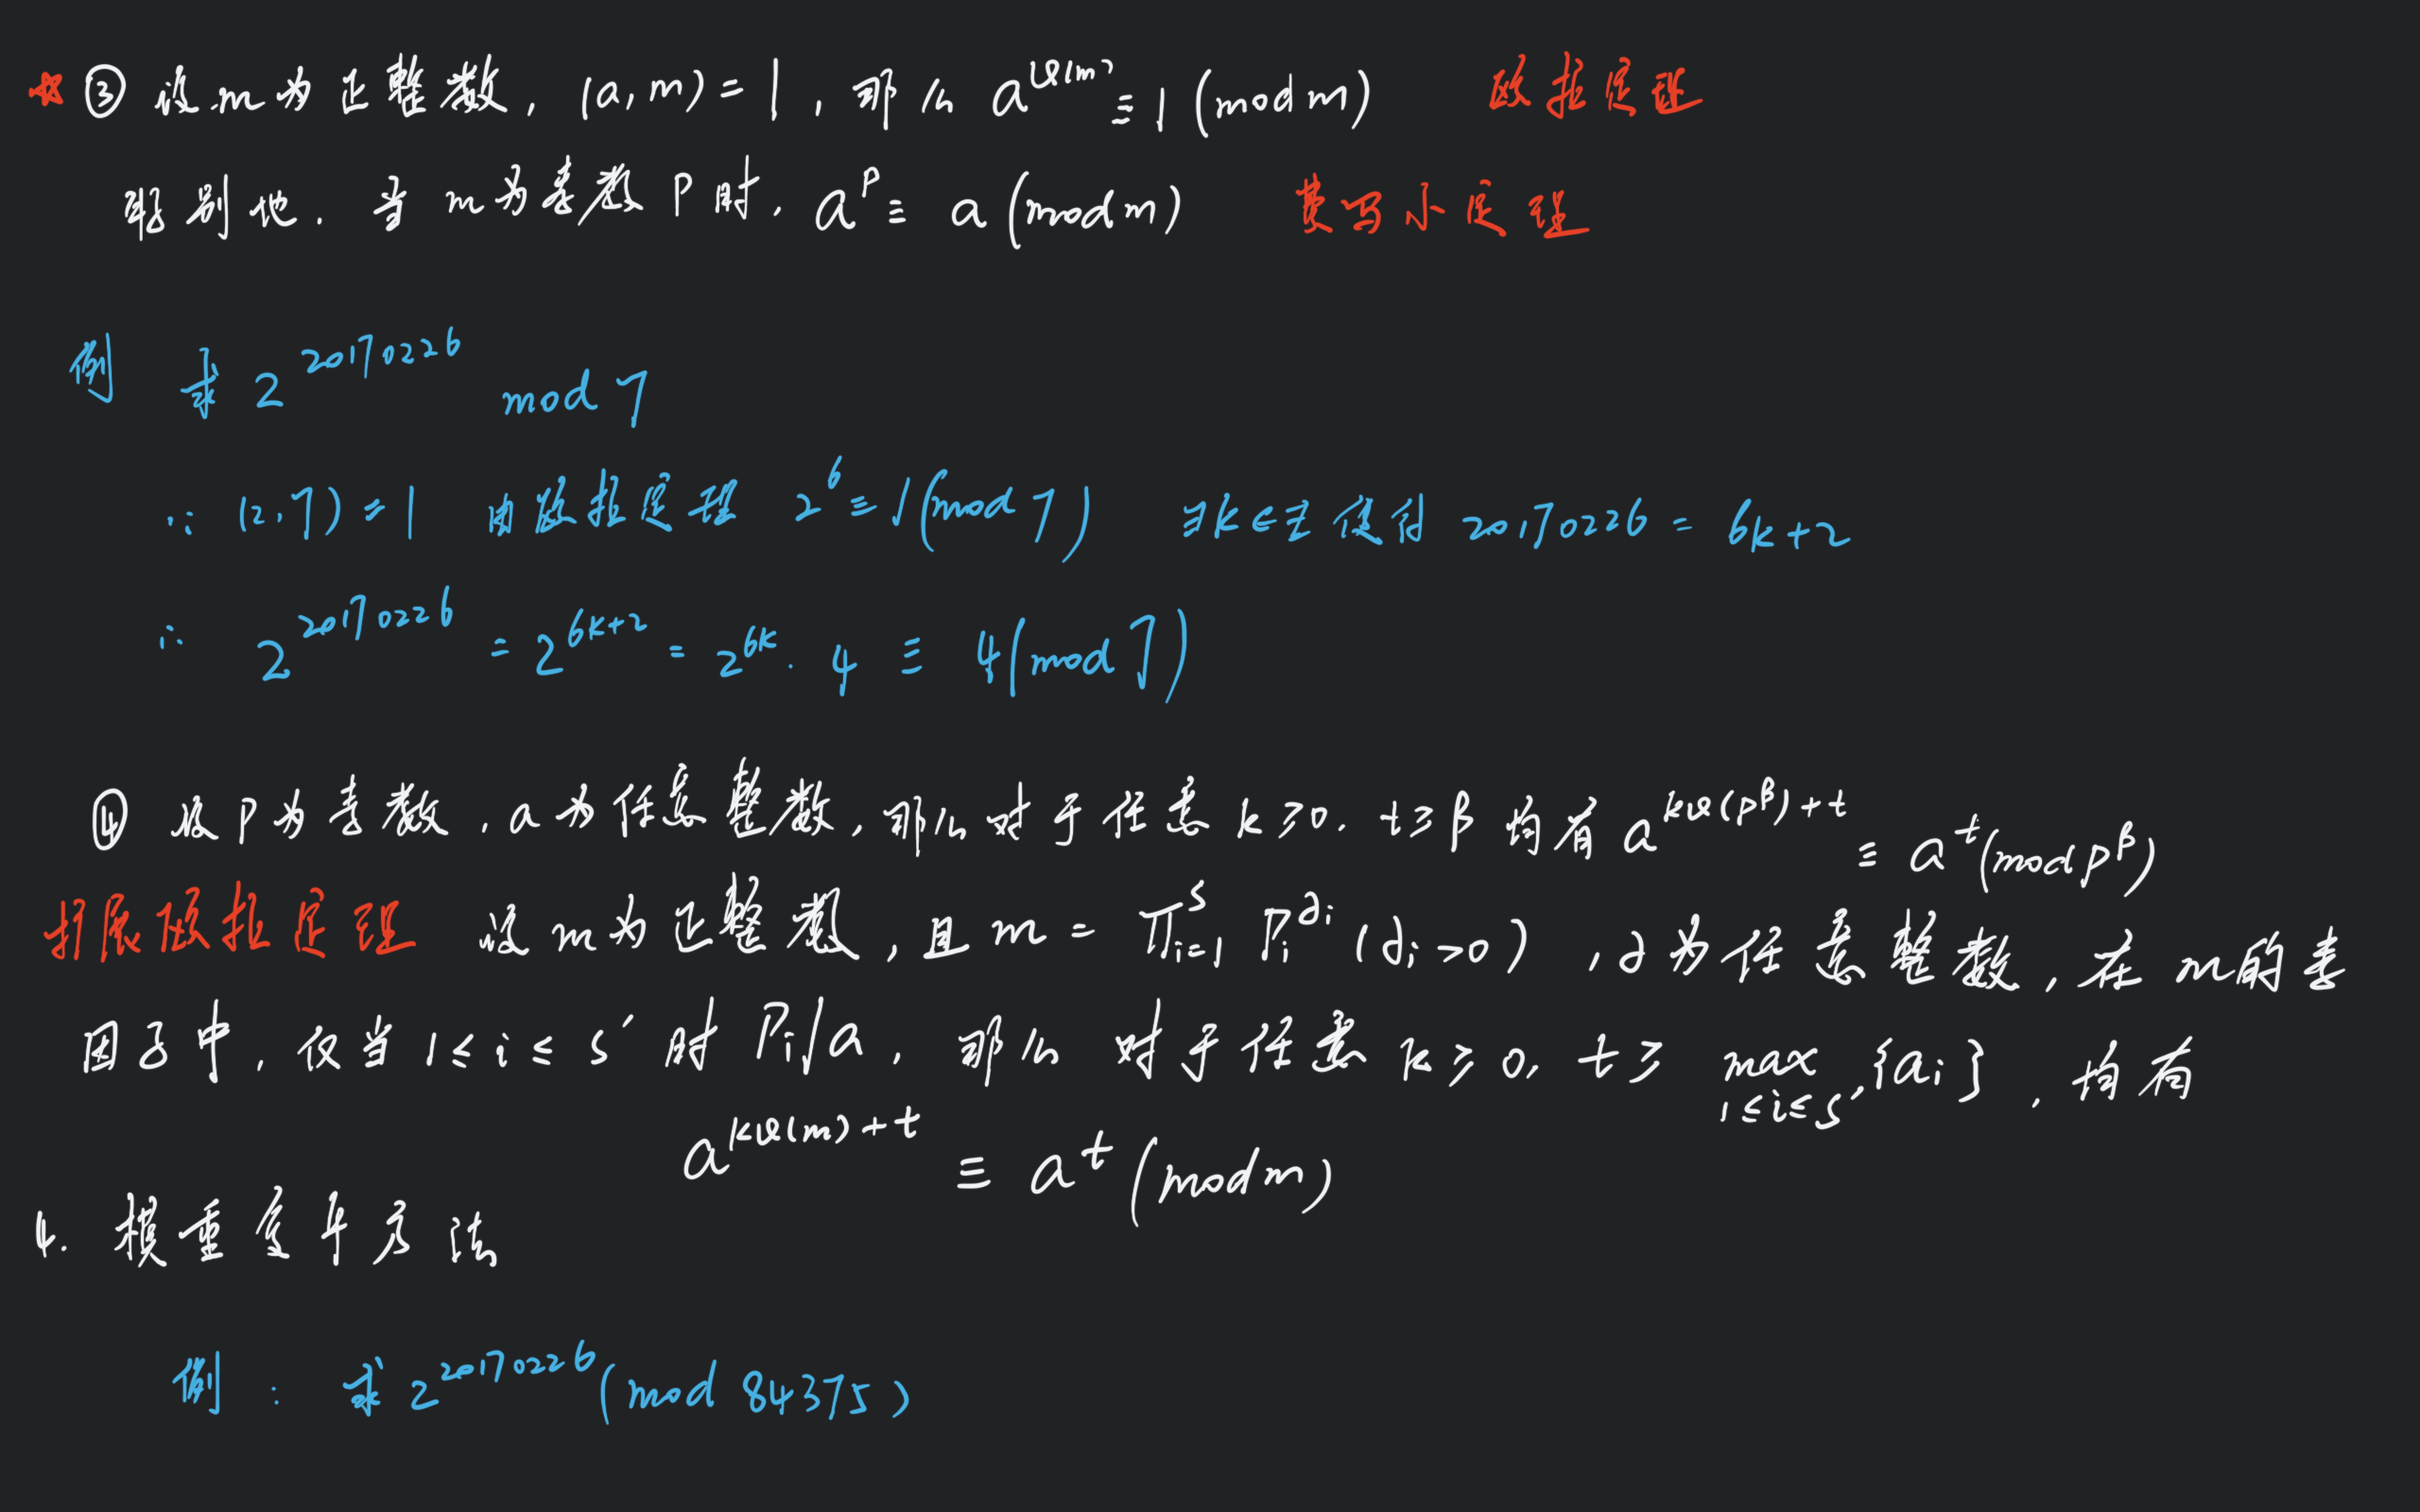 ☆ ③ 设m为正整数, (a,m)=1, 那么 a^φ(m) ≡ 1 (mod m) 欧拉定理
特别地. 当 m为素数 P时, a^P ≡ a (mod m) 费马小定理
例 求 2^20170226 mod 7
∵ (2,7)=1 由欧拉定理 2^6 ≡ 1 (mod 7) ∃k∈Z 使得 20170226 = 6k+2
∴ 2^20170226 = 2^6k+2 = 2^6k · 4 ≡ 4 (mod 7)
④ 设 P为素数, a为任意整数, 那么对于任意 k≥0, t≥β 均有 a^kφ(p^β)+t ≡ a^t (mod p^β)
扩展欧拉定理 设m为正整数, 且 m = ∏^s_i=1 P_i^∂i (∂i>0), ∂为任意整数, 在 m的素
因子中, 仅当 1≤i≤s′ 时 Pi|a, 那么 对于任意 k≥0, t≥ max 1≤i≤s′ {ai}, 均有
a^kφ(m)+t ≡ a^t (mod m)
4. 模重复平方法
例: 求 2^20170226 (mod 84375)